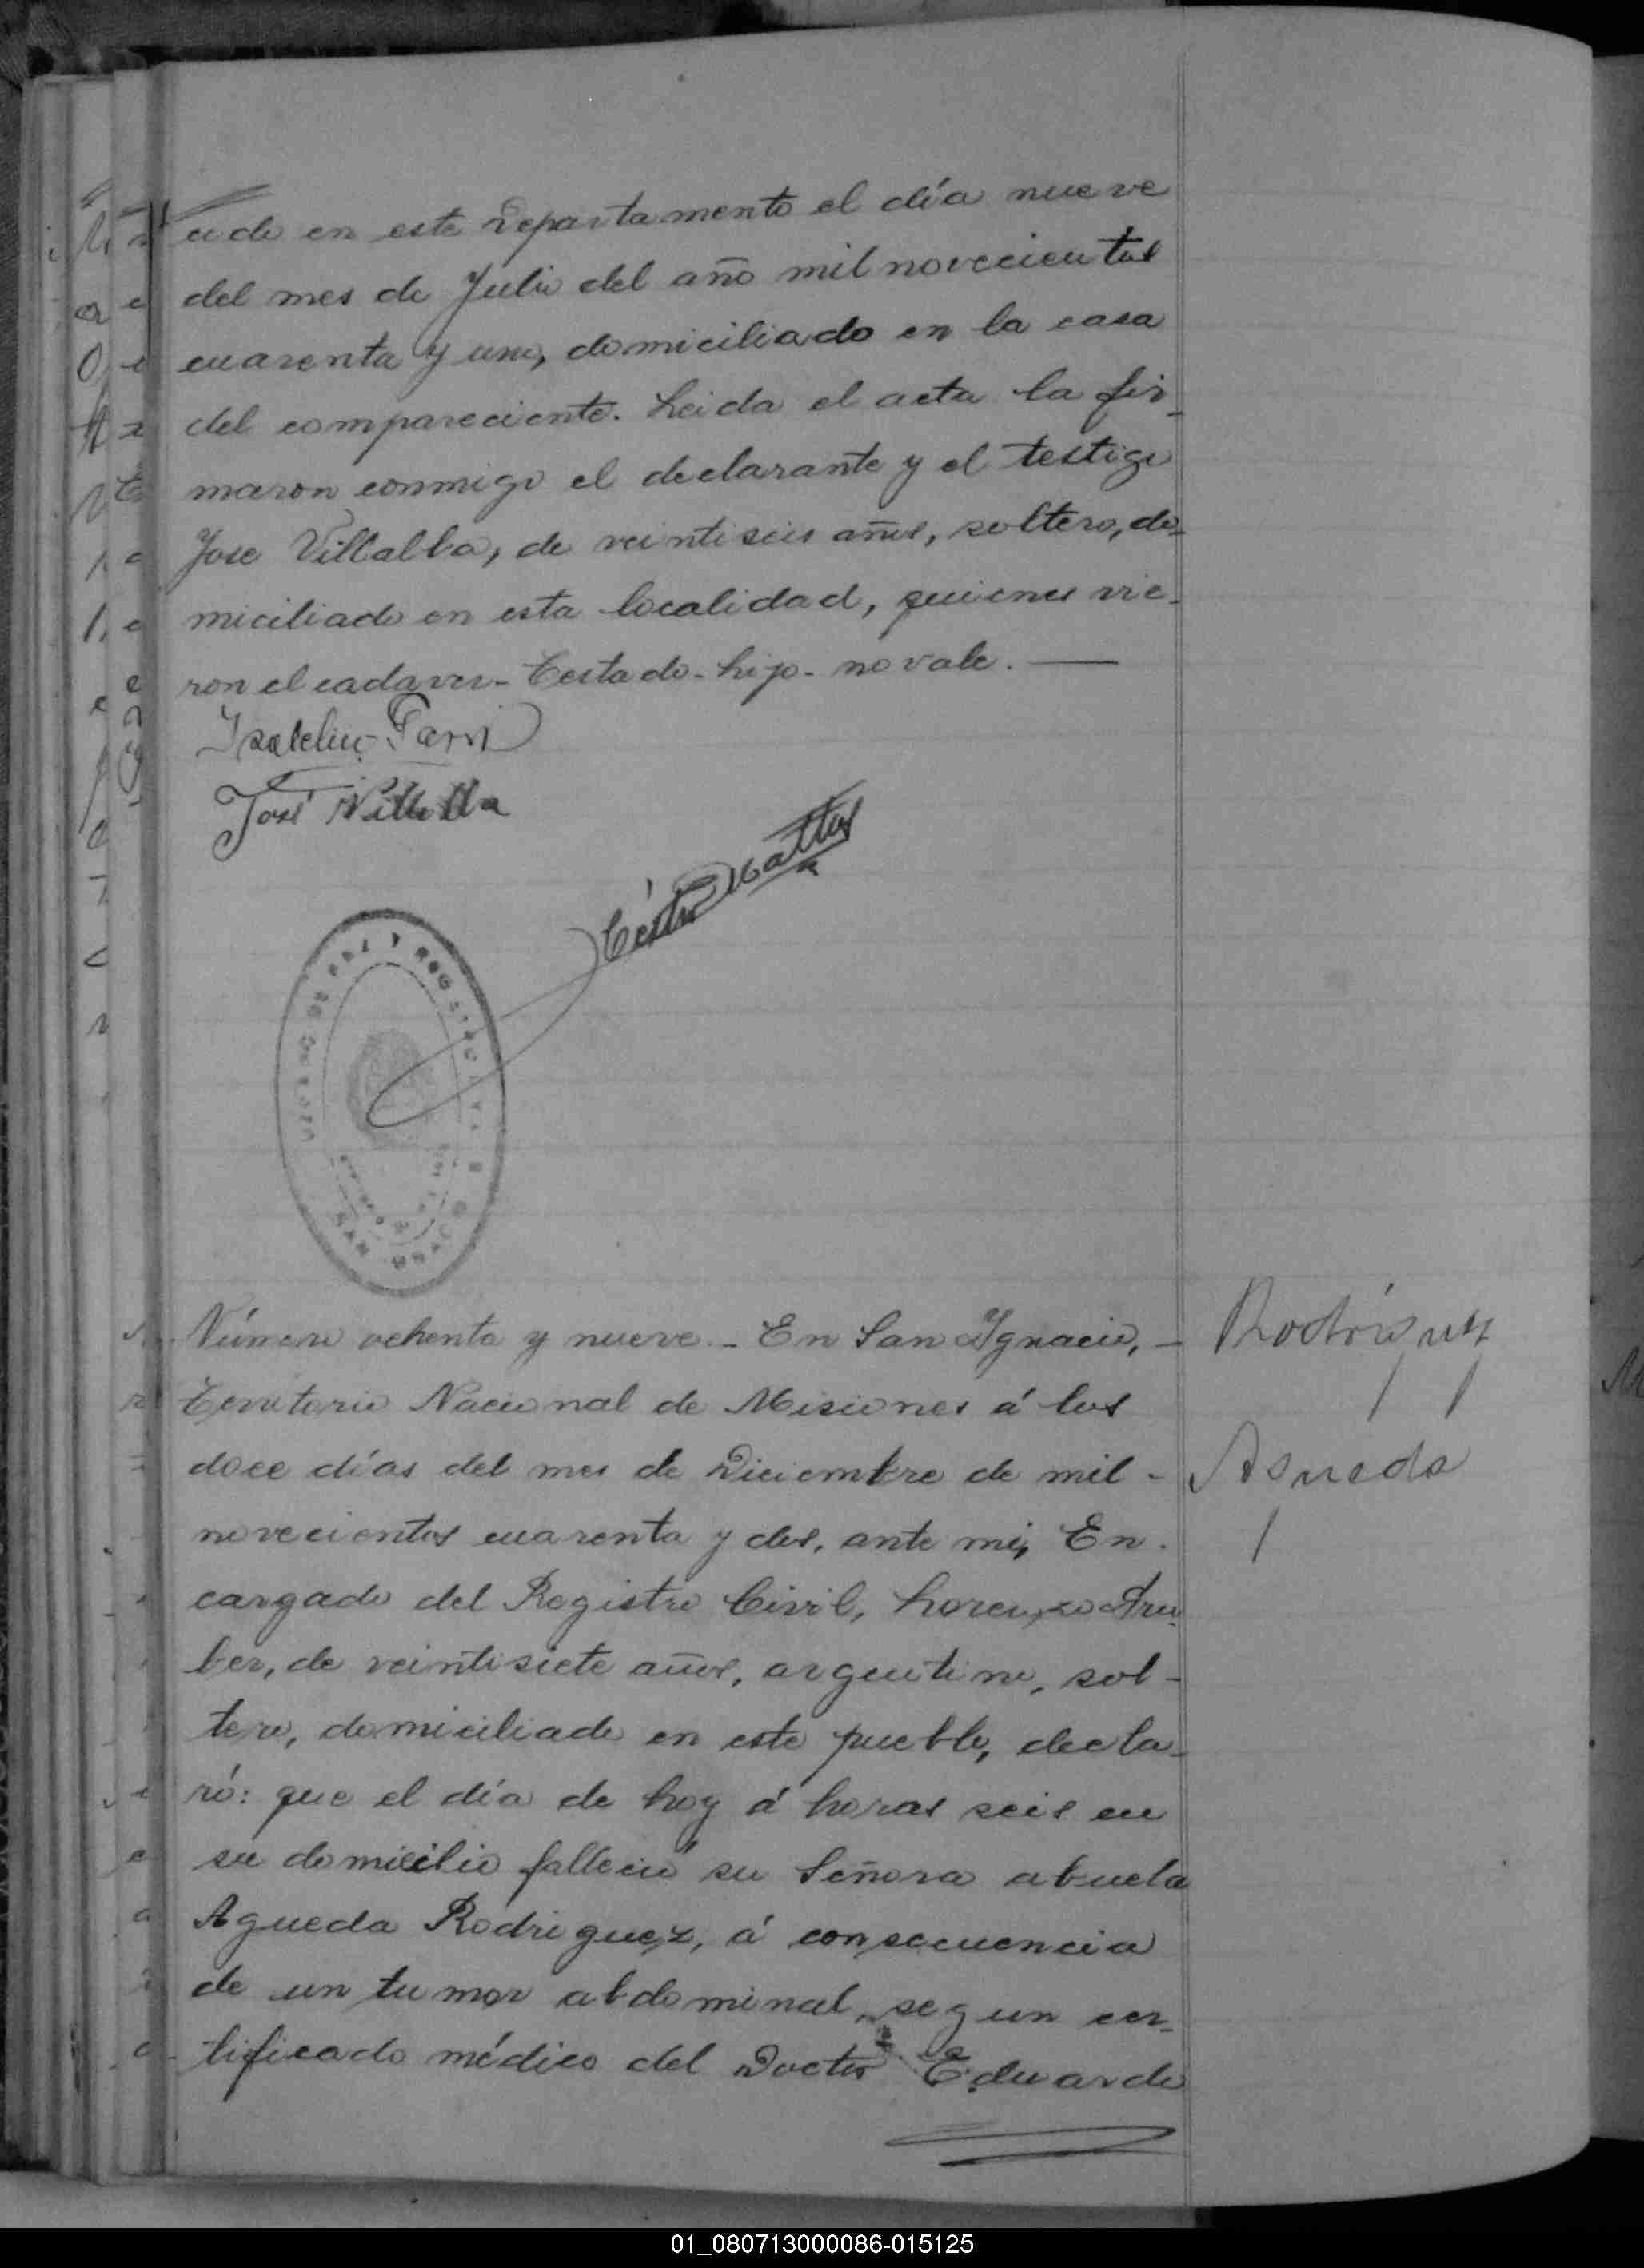 cido en este Departamento el día nueve
del mes de Julio del año mil novecientos
cuarenta y uno, domiciliado en la casa
del compareciente. Leida el acta la fir-
maron conmigo el declarante y el testigo
Jose Villalba, de veintiseis años, soltero, do-
miciliado en esta localidad, quienes vie-
ron el cadaver - Testado - hijo - no vale. —
José Villalba
SAN IGNACIO
Número ochenta y nueve. - En San Ygnacio, -
Territorio Nacional de Misiones á los
doce días del mes de Diciembre de mil -
novecientos cuarenta y dos, ante mi, En-
cargado del Registro Civil, Lorenzo
ber, de veintisiete años, argentino, sol-
tero, domiciliado en este pueblo, decla-
ró: que el día de hoy á horas seis en
su domicilio falleció su Señora abuela
Agueda Rodriguez, á consecuencia
de un tumor abdominal, segun cer-
tificado médico del Doctor Eduardo
Rodríguez
Agueda
01_080713000086-015125